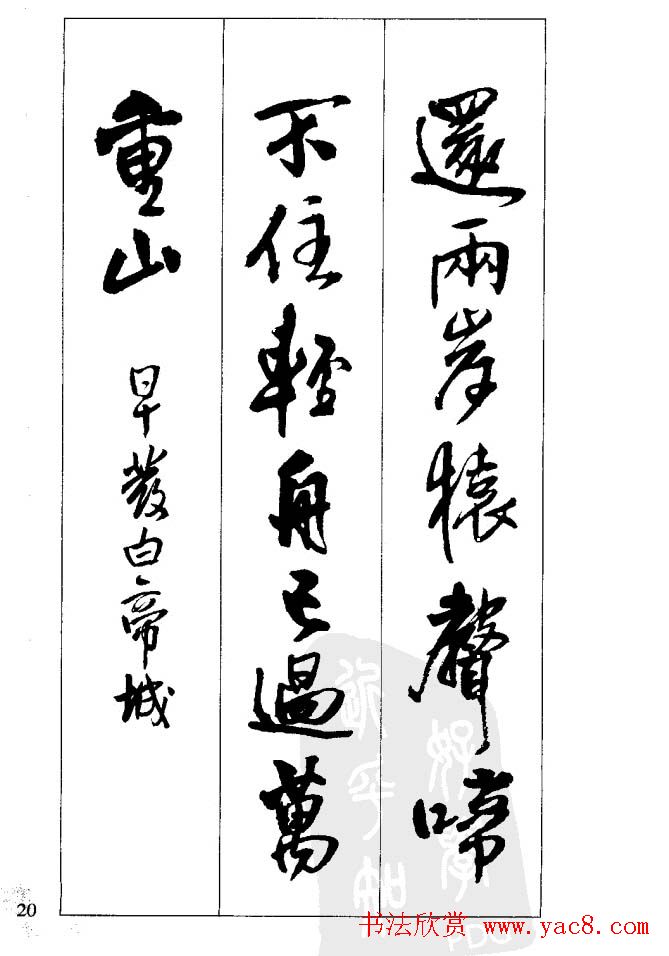 還兩岸猿聲啼
不住輕舟已過萬
重山
早發白帝城
20
书法欣赏 www.yac8.com